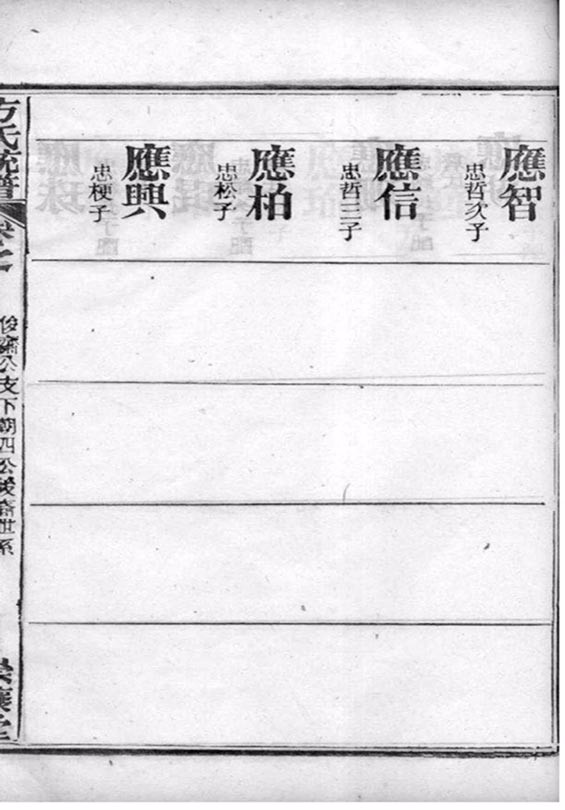 應智
忠哲次子
應信
忠哲三子
應柏
忠松子
應興
忠梗子
方氏統譜
俊 公支下朝四公後裔世系